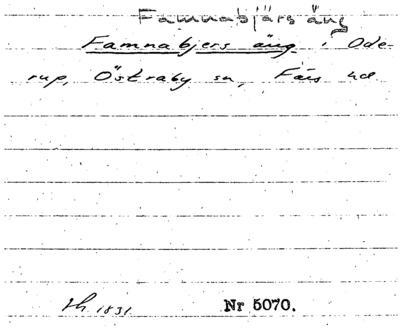 Famnabjärs äng
Famnabjers äng i Ode-
rup, Östraby sn, Färs hd
1831. Nr 5070.